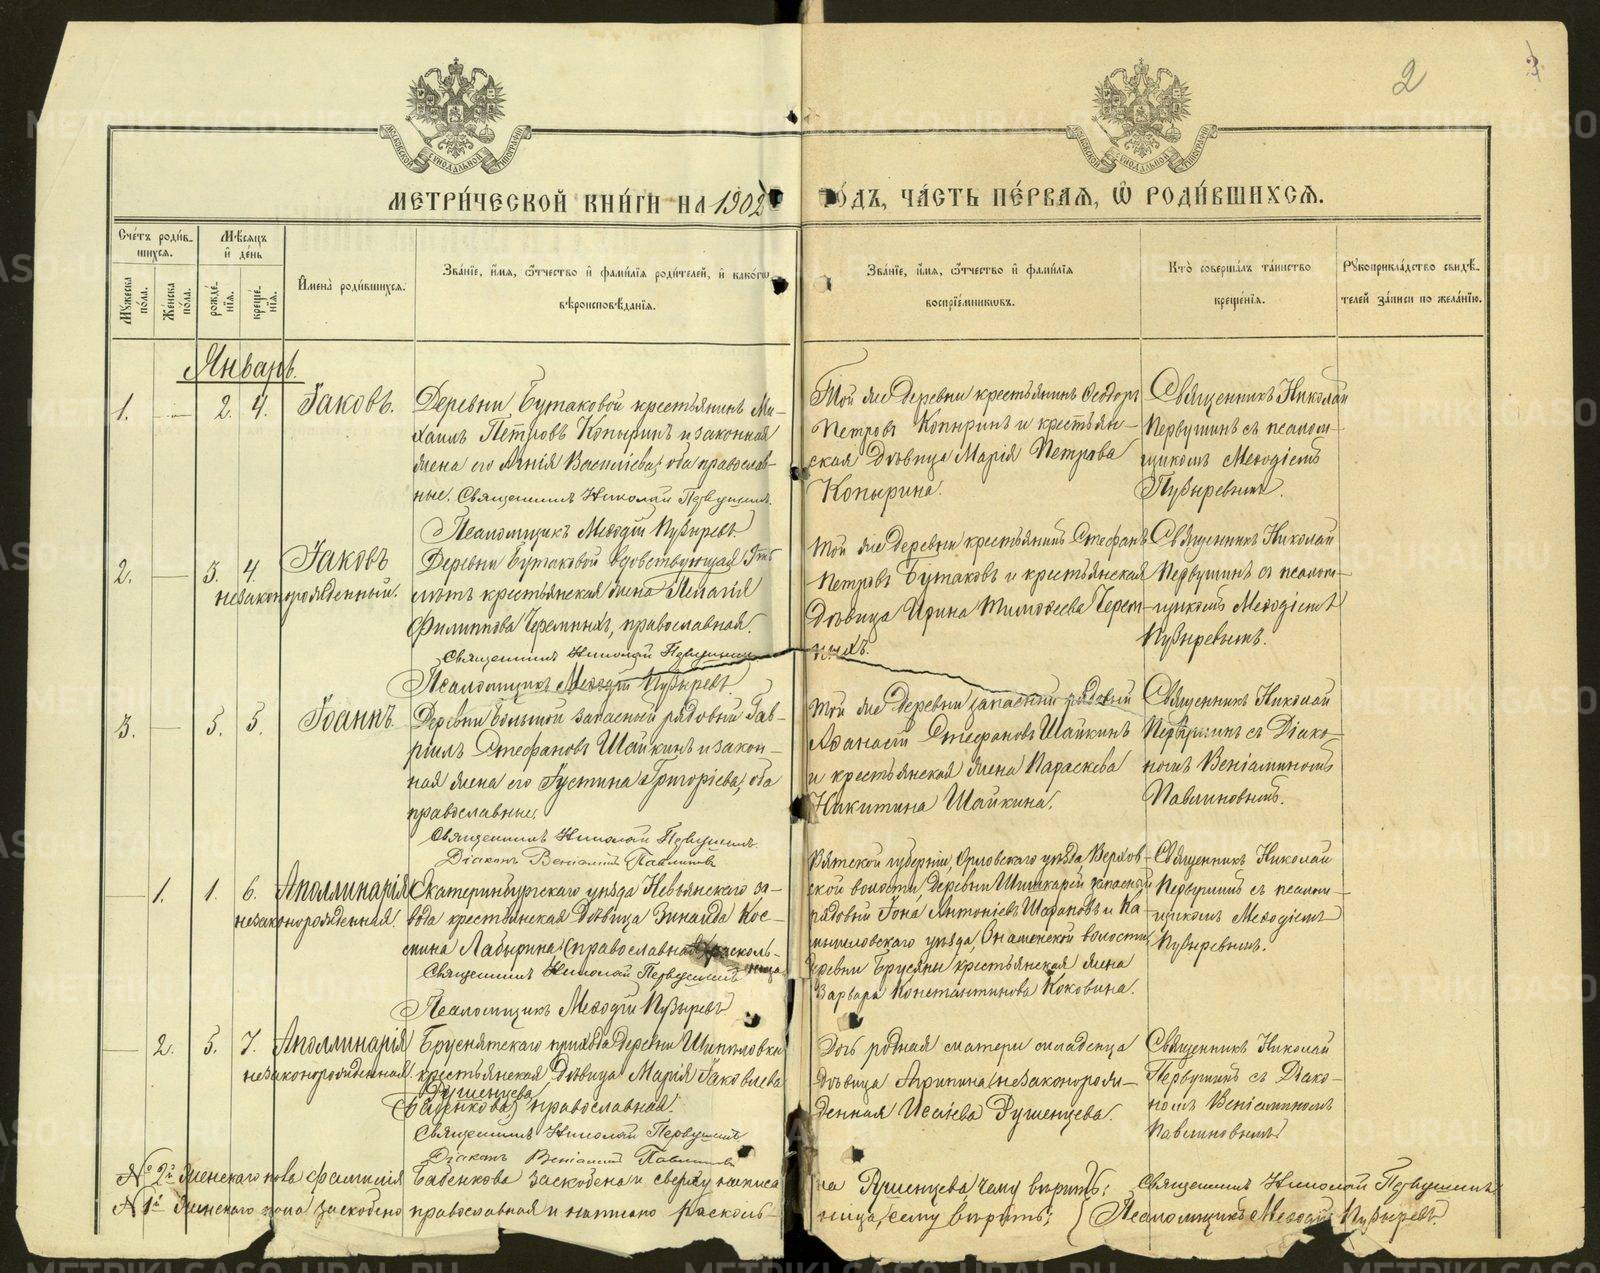 2
МОСКОВСКОЙ СѴНОДАЛЬНОЙ ТИПОГРАФІИ
МОСКОВСКОЙ СѴНОДАЛЬНОЙ ТИПОГРАФІИ
МЕТРИ́ЧЕСКОЙ КНИ́ГИ НА 1902 ГО́ДЪ, ЧА́СТЬ ПЕ́РВАЯ, Ѡ РОДИ́ВШИХСЯ.
Сче́тъ роди́в-
шихся.
Му́жеска
по́ла.
Же́нска
по́ла.
Мѣ́сяцъ
и де́нь
рожде́-
нїя.
креще́-
нїя.
Имена̀ роди́вшихся.
Зва́нїе, и́мя, ѻ́тчество и фами́лїя роди́телей, и како́гѡ
вѣроисповѣ́данїя.
Зва́нїе, и́мя, ѻ́тчество и фами́лїя
воспрїе́мниковъ.
Кто̀ соверша́лъ та́инство
креще́нїя.
Рꙋкоприкла́дство свидѣ́-
телей за́писи по жела́нїю.
Январь.
1. — 2. 4. Іаковъ.
Деревни Бутаковой крестьянинъ Ми-
хаилъ Петровъ Копыринъ и законная
жена его Агнія Васильева, оба православ-
ные. Священникъ Николай Первушинъ.
Псаломщикъ Меѳодій Пузыревъ
Той же деревни крестьянинъ Ѳеодоръ
Петровъ Копыринъ и крестьян-
ская дѣвица Марія Петрова
Копырина.
Священникъ Николай
Первушинъ съ псалом-
щикомъ Меѳодіемъ
Пузыревымъ.
2. — 3. 4. Іаковъ
незаконорожденный.
Деревни Бутаковой вдовствующая
крестьянская жена
Филиппова Черемныхъ, православная.
Священникъ Николай Первушинъ
Псаломщикъ Меѳодій Пузыревъ
Той же деревни крестьянинъ Стефанъ
Петровъ Бутаковъ и крестьянская
дѣвица Ирина Тимоѳеева Черем-
ныхъ.
Священникъ Николай
Первушинъ съ псалом-
щикомъ Меѳодіемъ
Пузыревымъ.
3. — 5. 5. Іоаннъ.
Деревни Большой запасный рядовый Гав-
риилъ Стефановъ Шайкинъ и закон-
ная жена его Іустина Григоріева, оба
православные.
Священникъ Николай Первушинъ.
Діаконъ Веніаминъ Павлиновъ
Той же деревни запасный рядовый
Аѳанасій Стефановъ Шайкинъ
и крестьянская жена Параскева
Никитина Шайкина.
Священникъ Николай
Первушинъ съ Діако-
номъ Веніаминомъ
Павлиновымъ.
— 1. 1. 6. Аполлинарія
незаконорожденная.
Екатеринбургскаго уѣзда Невьянскаго за-
вода крестьянская дѣвица Зинаида Кос-
мина Лабырина (православная) расколь-
ница
Священникъ Николай Первушинъ
Псаломщикъ Меѳодій Пузыревъ
Вятской губерніи, Орловскаго уѣзда Верхов-
ской волости, деревни Шишкарей запасный
рядовый Іона Антоніевъ Шараповъ и Ка-
мышловскаго уѣзда, Знаменской волости,
деревни Брусяны крестьянская жена
Варвара Константинова Коковина.
Священникъ Николай
Первушинъ съ псалом-
щикомъ Меѳодіемъ
Пузыревымъ.
— 2. 5. 7. Аполлинарія
незаконорожденная
Бруснятскаго прихода деревни Шипиловки
крестьянская дѣвица Марія Іаковлева
Рушенцева
(Бабенкова) православная.
Священникъ Николай Первушинъ
Діаконъ Веніаминъ Павлиновъ
Дочь родная матери младенца
дѣвица Агрипина незаконорож-
денная Исаіева Рушенцева.
Священникъ Николай
Первушинъ съ Діако-
номъ Веніаминомъ
Павлиновымъ
№ 2й женскаго пола фамилія Бабенкова заскоблена и сверху написа на Рушенцева чему вѣрить; Священникъ Николай Первушинъ
№ 1й женскаго пола заскоблено православная и написано расколь- ница, сему вѣрить; Псаломщикъ Меѳодій Пузыревъ.
METRIKI.GASO-URAL.RU